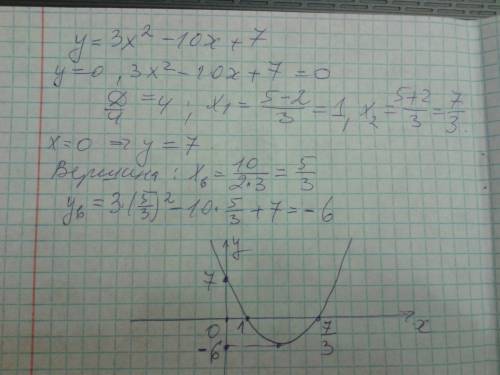 y = 3x² - 10x + 7
y = 0, 3x² - 10x + 7 = 0
D/4 = 4; x₁ = (5-2)/3 = 1, x₂ = (5+2)/3 = 7/3.
x = 0 ⇒ y = 7.
Вершина: xв = 10/(2·3) = 5/3
yв = 3·(5/3)² - 10·5/3 + 7 = -6
y
7
0 1 7/3 x
-6